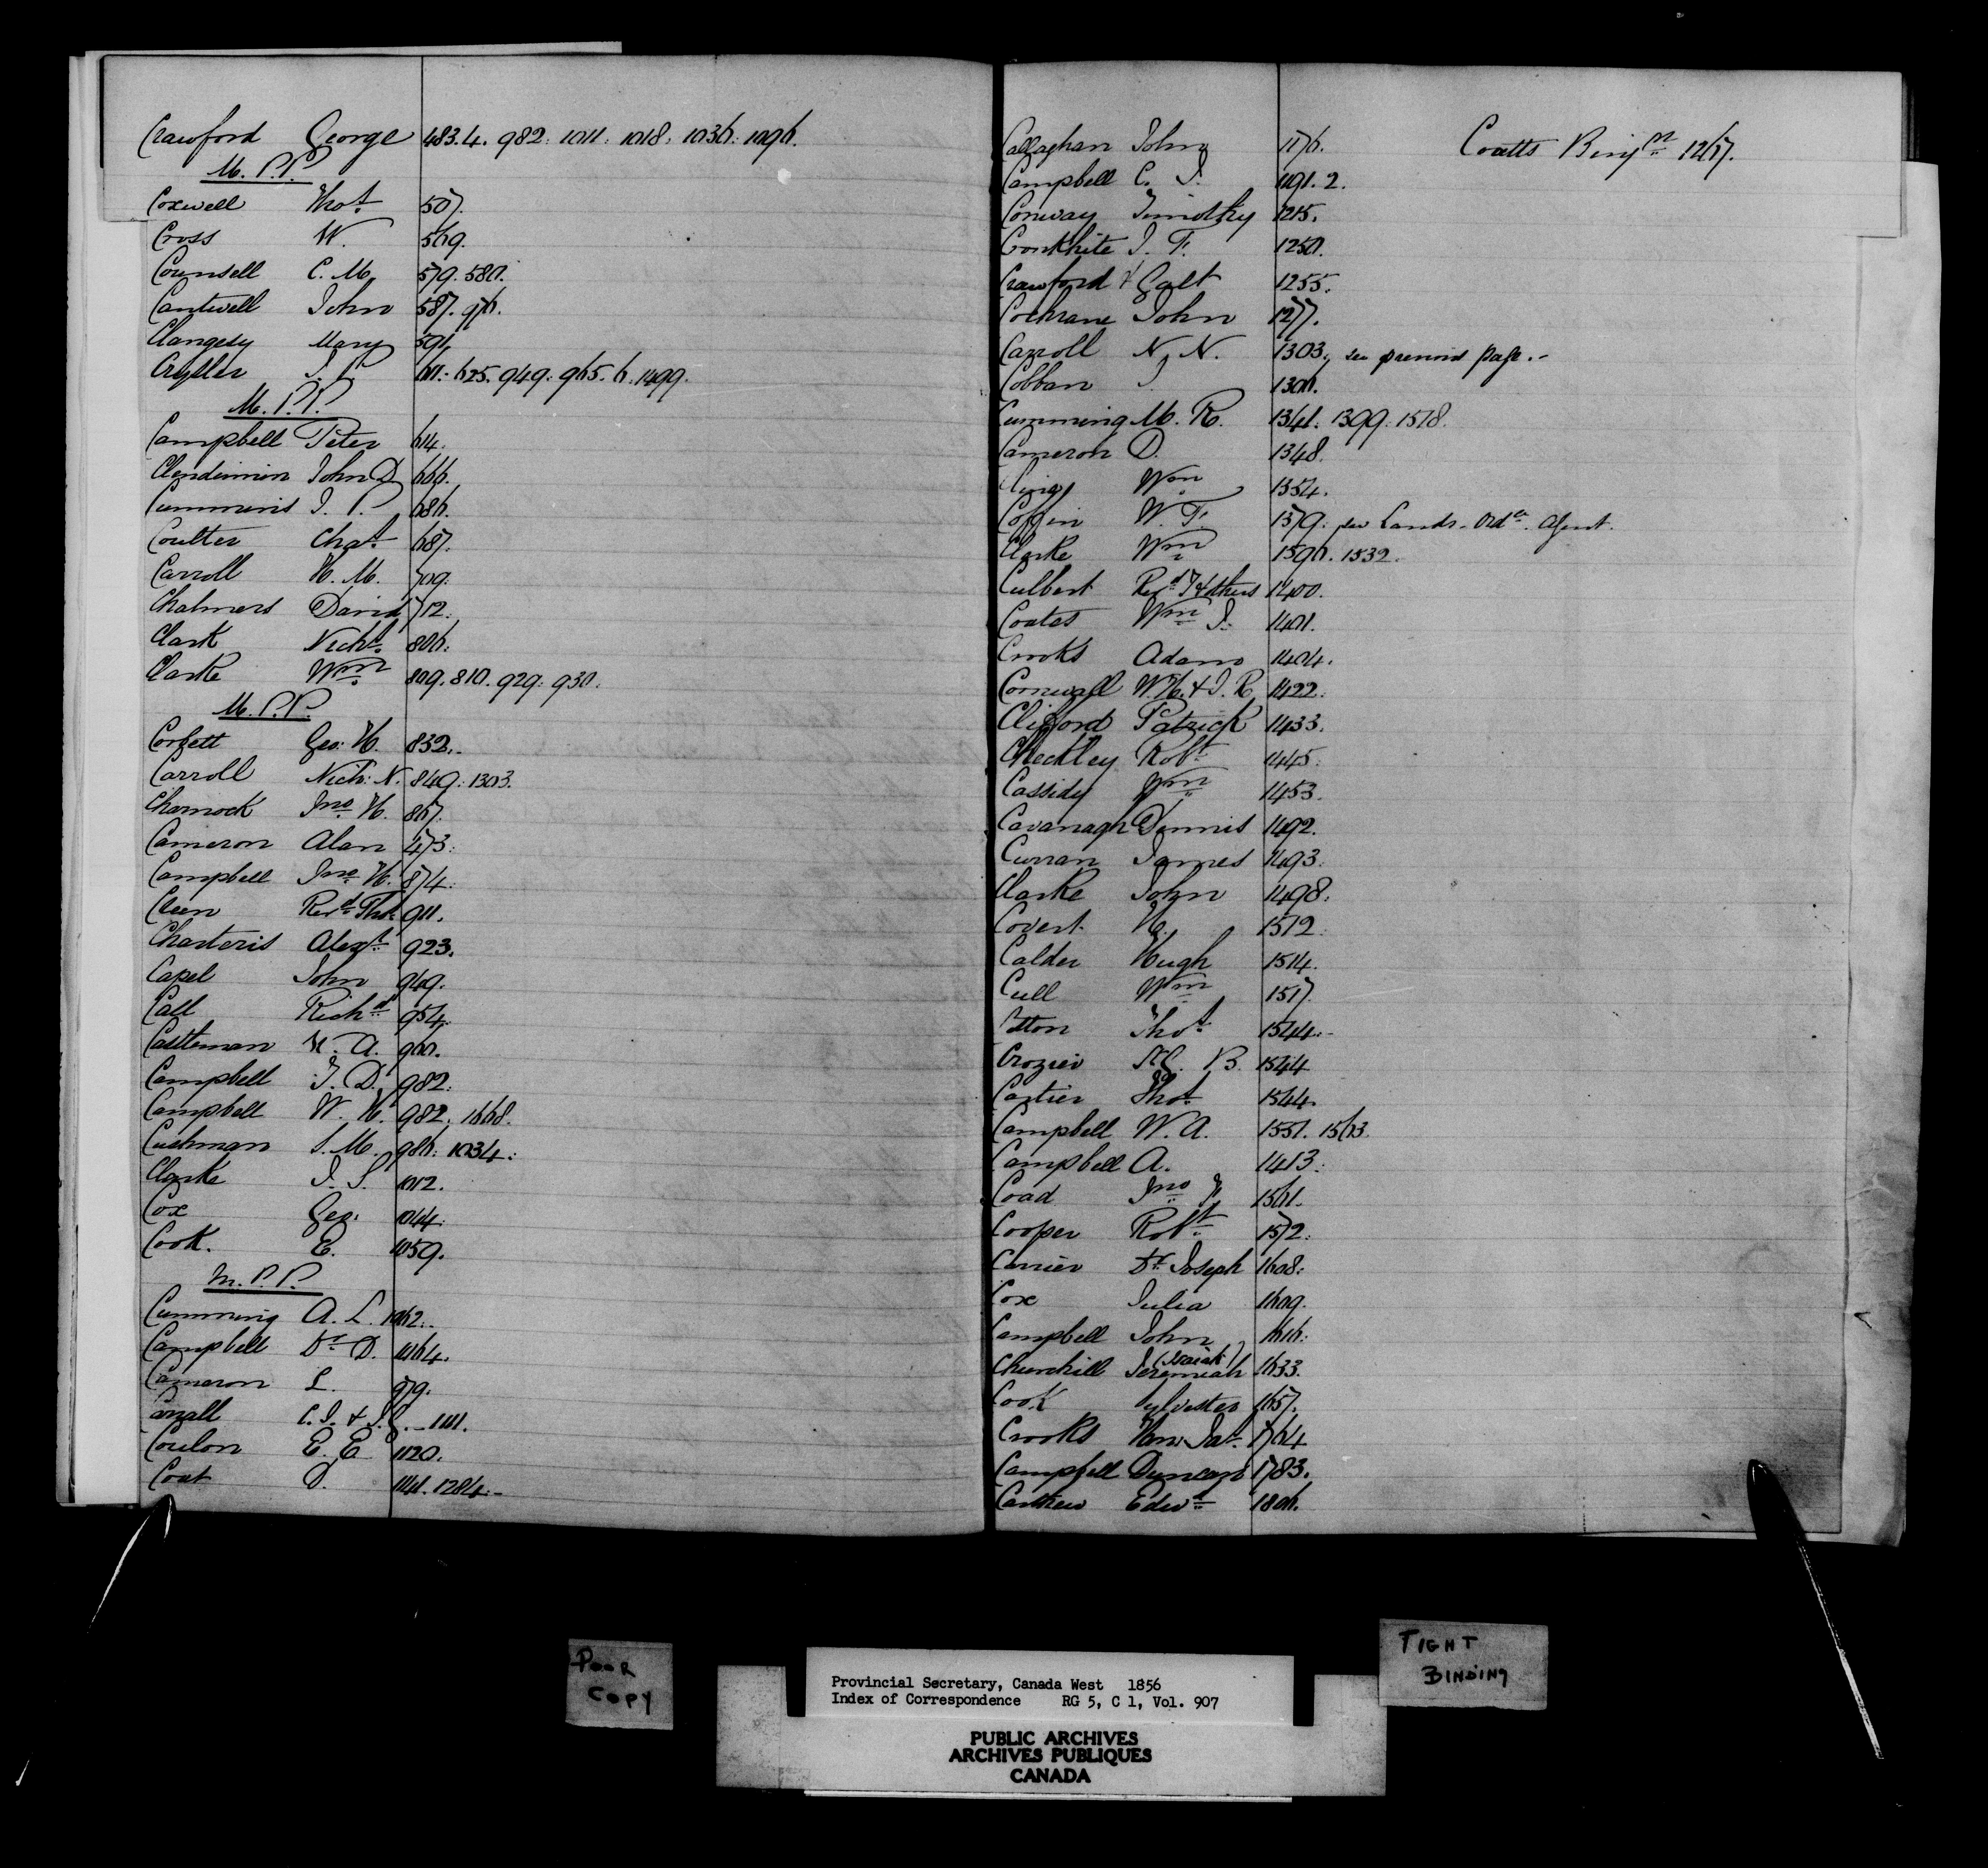 Crawford George 483.4. 982: 1011: 1018: 1036: 1096.
M.P.P.
Coxwell Thos. 507.
Cross W. 569.
Counsell C. M. 579. 580.
Cantwell John 587. 976.
Mary 591.
Crysler J. P. 611: 625. 949: 965. 6. 1499.
M.P.P.
Campbell Peter 614.
Clendinnin John D. 666.
Cummins J. P. 686.
Coulter Chas. 687.
Carroll H. M. 709.
Chalmers David 712.
Clark Nichs. 806:
Clarke Wm. 809. 810. 929: 930.
M.P.P.
Corbett Geo: H. 832.
Carroll Nich: N. 849: 1303.
Charnock Jno. H. 867.
Cameron Alan 473:
Campbell Jno. H. 874.
Cleen Revd. Thos. 911.
Charteris Alexr. 923.
Capel John 949.
Call Richd. 954.
Castleman H. A. 960.
Campbell T. D. 982.
Campbell W. H. 982. 1668.
Cushman S. M. 986: 1034:
Clarke J. S. 1012.
Cox Geo. 1044:
Cook. E. 1059.
M.P.P.
Cumming A. L. 1062.
Campbell Dr. D. 1064.
Cameron L. 979.
C. J. & J. 1111.
Coulon E. E. 1120.
Coat D. 1141. 1284.
Callaghan John 1176.
Campbell C. J. 1191. 2.
Conway Timothy 1215.
Cronkhite J. F. 1250.
Crawford & Galt 1255.
Cochrane John 1277.
Carroll N. N. 1303. see previous page.
Cobban J. 1306.
Cumming M. R. 1341. 1399. 1518.
Cameron D. 1348.
Wm. 1354.
Coffin W. F. 1379. see Lands. Ordce. Agent.
Clarke Wm 1396. 1532.
Culbert Revd. T & others 1400.
Coates Wm. J. 1401.
Crooks Adam 1404.
Cornwall W. H. & J. R. 1422.
Clifford Patrick 1433.
Checkley Robt 1445.
Cassidy Wm 1453.
Cavanagh Dennis 1492.
Curran James 1493.
Clarke John 1498.
Covert H. 1512
Calder Hugh 1514.
Cull Wm 1517.
Cotton Thos. 1544.
Crozier St. G. B. 1544
Cartier Thos. 1544.
Campbell W. A. 1551. 1563.
Campbell A. 1413.
Coad Jno. 1561.
Cooper Robt. 1572.
Currier Dr. Joseph 1608.
Cox Julia 1609.
Campbell John 1616.
Churchill (Isaiah) Jeremiah 1633.
Cook Sylvester 1657.
Crooks Hon. Jas. 1764
Campbell Duncan 1783.
Carthew Edwd. 1806.
Coatts Benjn. 1267.
POOR
COPY
TIGHT
BINDING
Provincial Secretary, Canada West 1856
Index of Correspondence RG 5, C 1, Vol. 907
PUBLIC ARCHIVES
ARCHIVES PUBLIQUES
CANADA